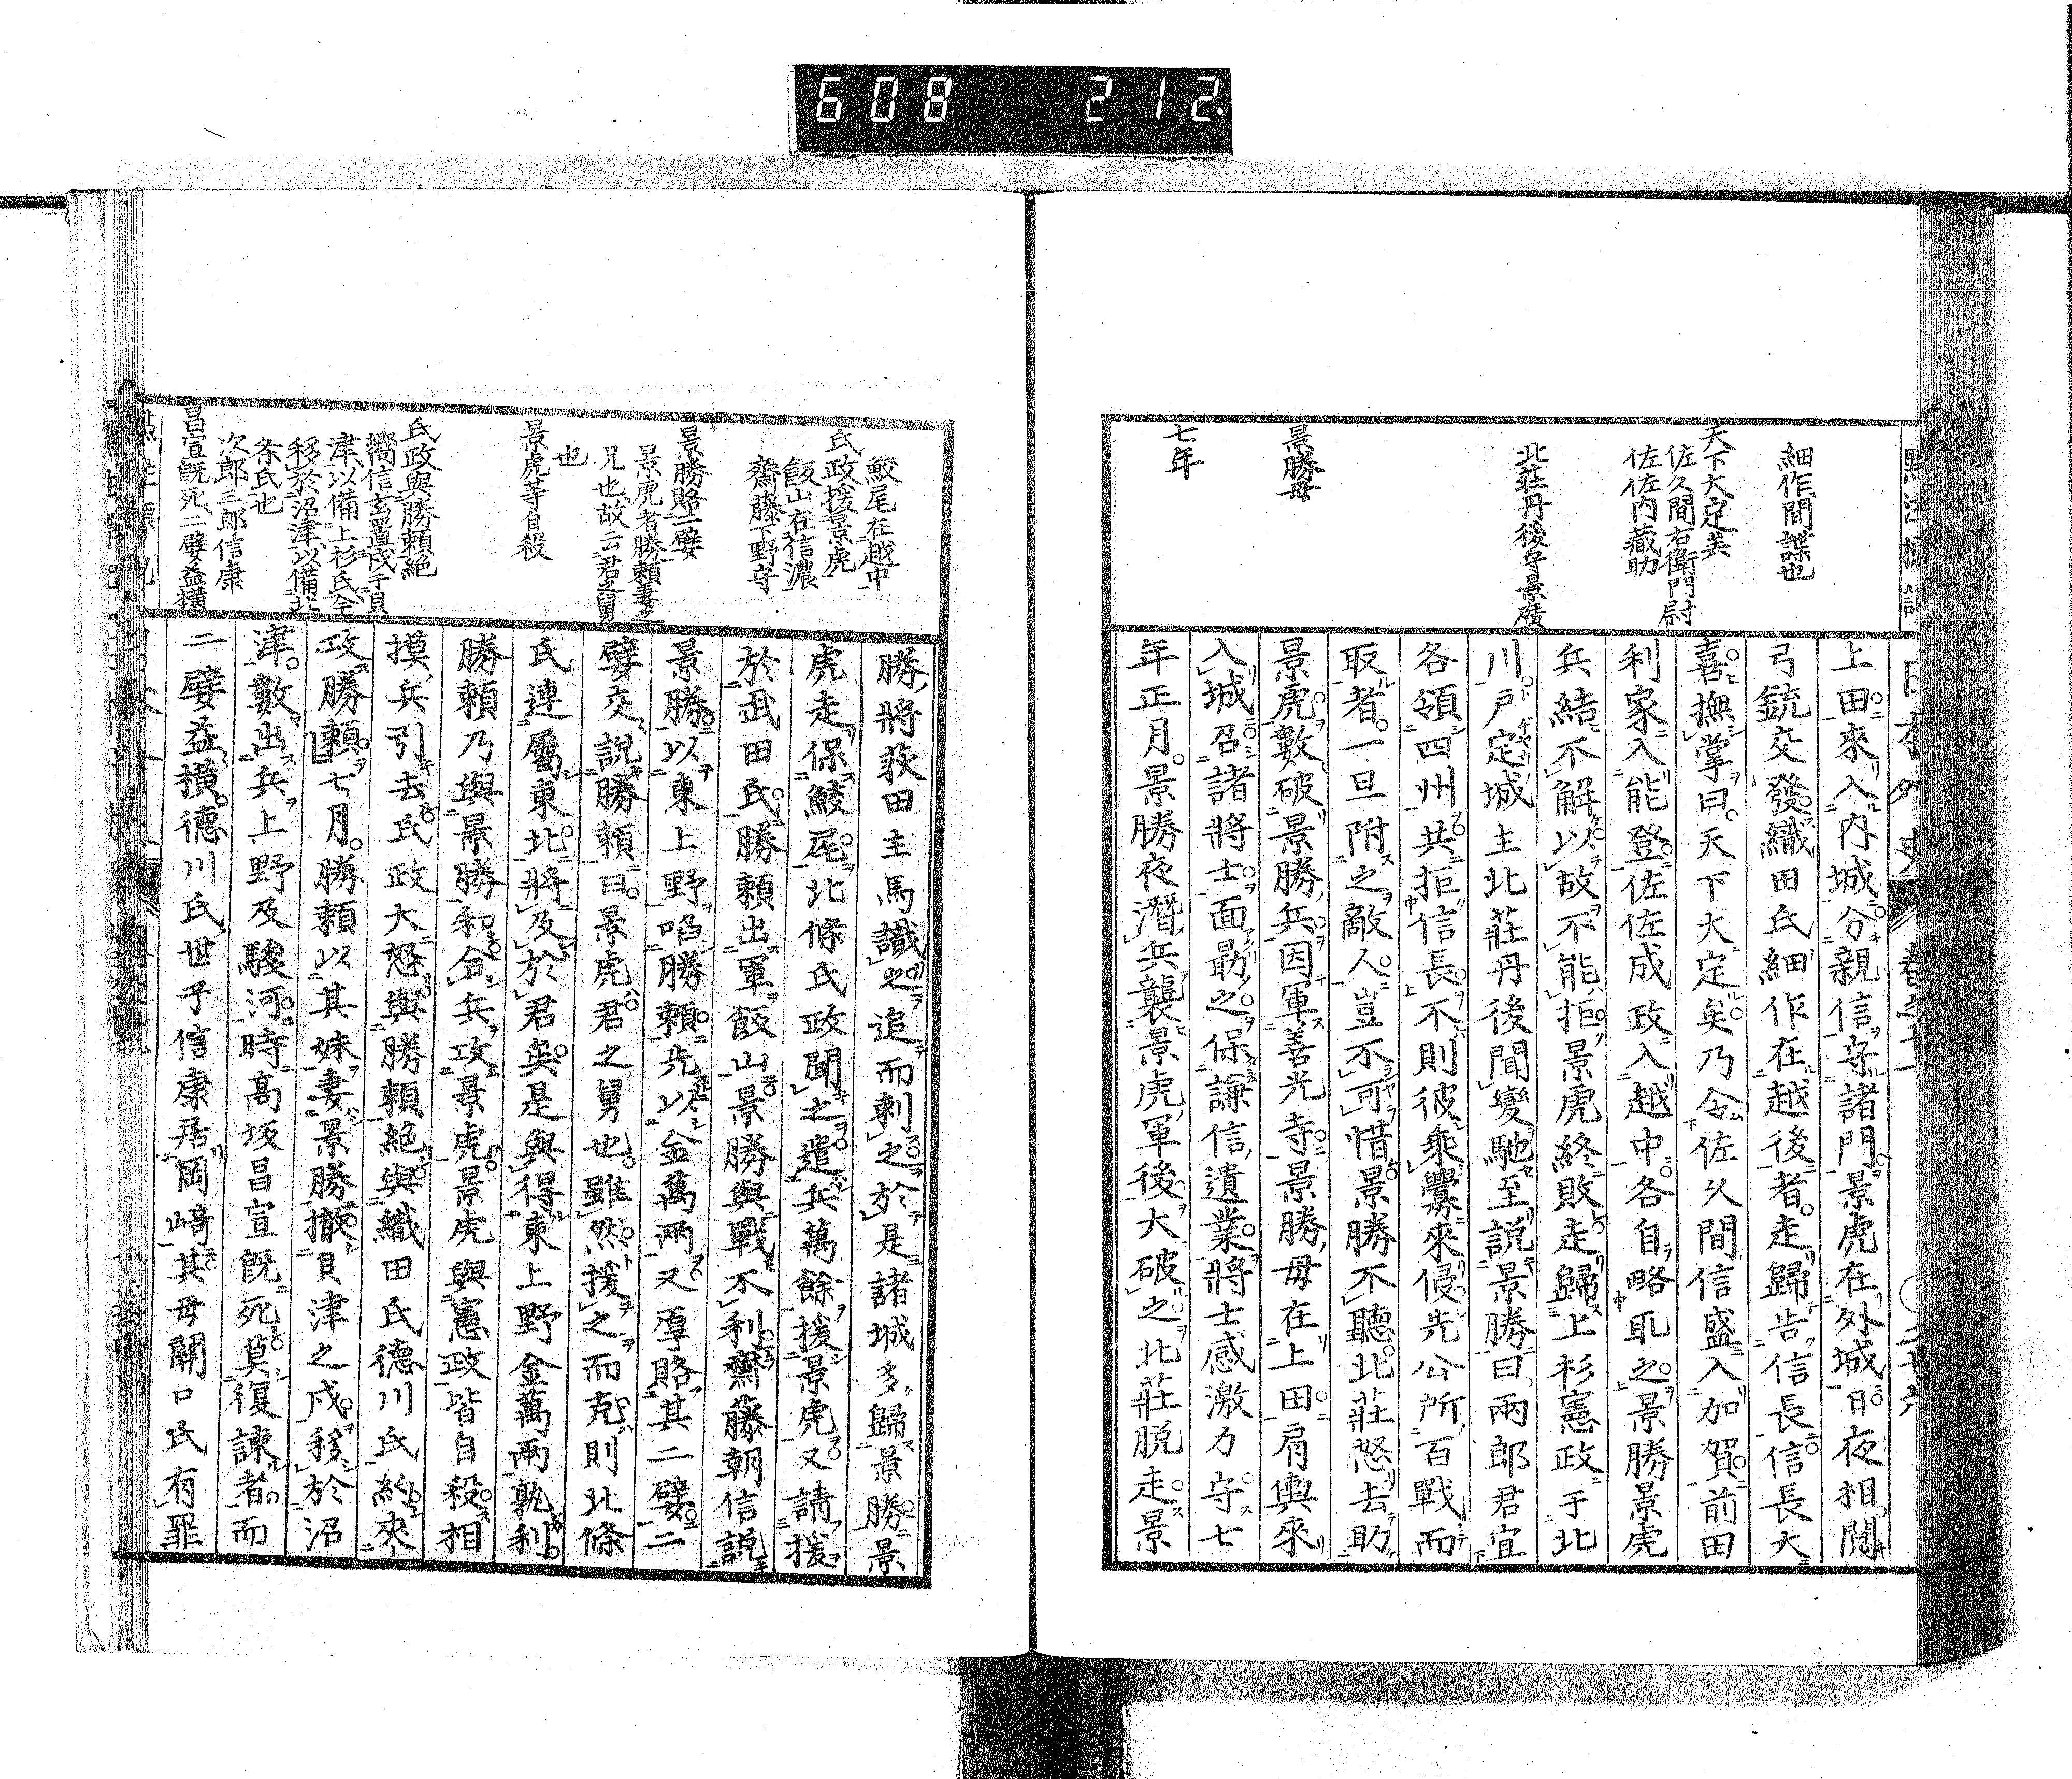 608 212
日本外史
細作間諜也
天下大定矣
佐久間右衛門尉
佐佐内藏助
北莊丹後守景廣
景勝母
七年
上田來入內城分親信守諸門景虎在外城日夜相鬩
弓銃交發織田氏細作在越後者走歸告信長信長大
喜撫掌曰天下大定矣乃令佐久間信盛入加賀前田
利家入能登佐佐成政入越中各自略取之景勝景虎
兵結不解以故不能拒景虎終敗走歸上杉憲政于北
川戶定城主北莊丹後聞變馳至說景勝曰兩郎君宜
各領四州共拒信長不則彼乘釁來侵先公所百戰而
取者一旦附之敵人豈不可惜景勝不聽北莊怒去助
景虎數破景勝兵因軍善光寺景勝母在上田肩輿來
入城召諸將士面勗之保謙信遺業將士感激乃守七
年正月景勝夜潛兵襲景虎軍後大破之北莊脫走景
鮫尾在越中
氏政援景虎
飯山在信濃
齋藤下野守
景勝賂二嬖
景虎者勝賴妻之
兄也故云君之舅
也
景虎等自殺
氏政與勝賴絕
嚮信玄置戍于貝
津以備上杉氏今
移於沼津以備北
条氏也
次郎三郎信康
昌宣既死二嬖益橫
勝將荻田主馬識之追而刺之於是諸城多歸景勝景
虎走保鮫尾北條氏政聞之遣兵萬餘援景虎又請援
於武田氏勝賴出軍飯山景勝與戰不利齋藤朝信說
景勝以東上野啗勝賴先以金萬兩又厚賂其二嬖二
嬖交說勝賴曰景虎君之舅也雖然援之而克則北條
氏連屬東北將及於君矣是與得東上野金萬兩孰利
勝賴乃與景勝和合兵攻景虎景虎與憲政皆自殺相
摸兵引去氏政大怒與勝賴絕與織田氏德川氏約夾
攻勝賴七月勝賴以其妹妻景勝撤貝津之戍移於沼
津數出兵上野及駿河時高坂昌宣既死莫復諫者而
二嬖益橫德川氏世子信康居岡崎其母關口氏有罪